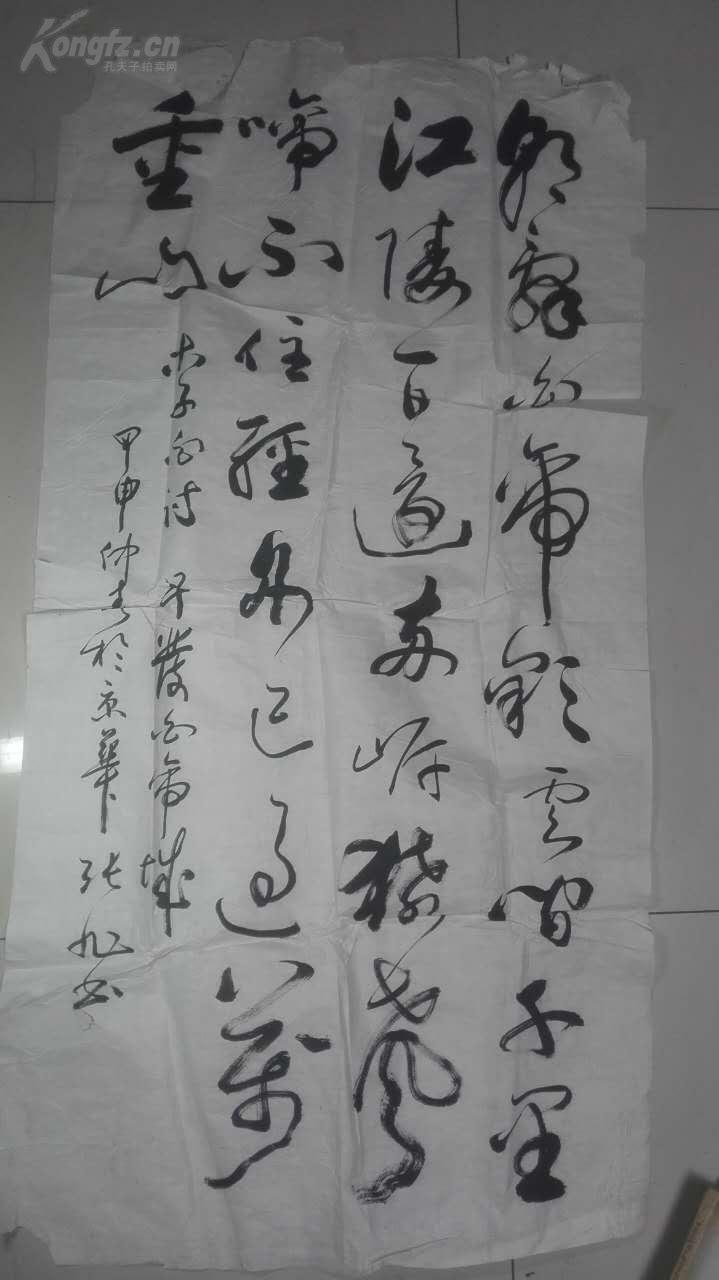 Kongfz.cn
孔夫子拍卖网
朝辭白帝彩雲間千里
江陵一日還两岸猿聲
啼不住輕舟已过萬
重山
李白诗 早發白帝城
甲申仲春於京華 张旭书